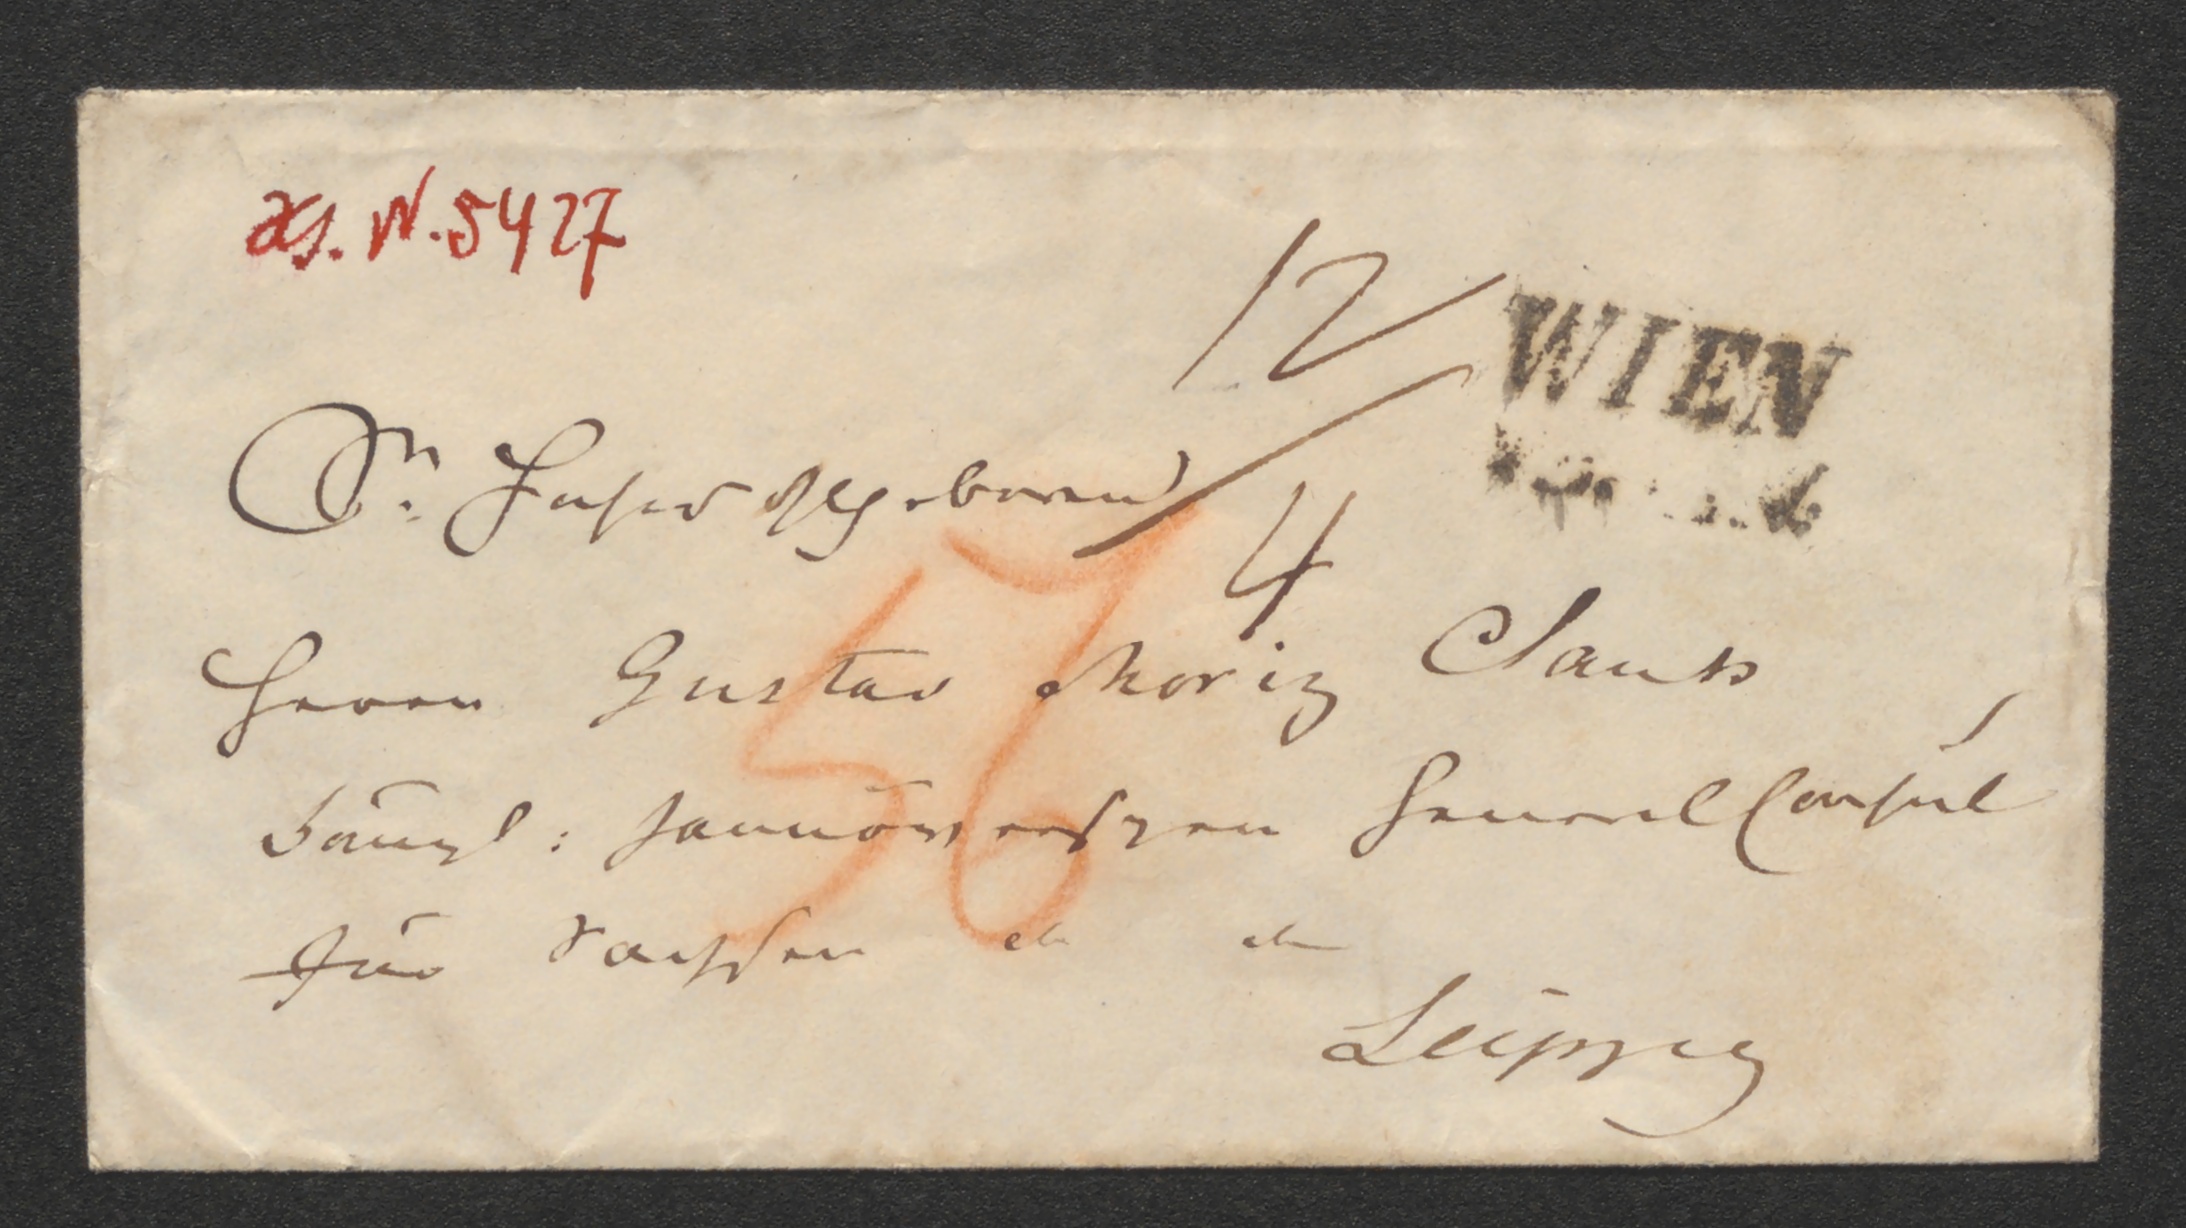 Hs. N. 5427
12
WIEN
4
Sr: Hochwohlgeboren
56
Herrn Gustav Moriz Clauß
Königl: Hannöverschen General Consul
für Sachsen etc etc
Leipzig